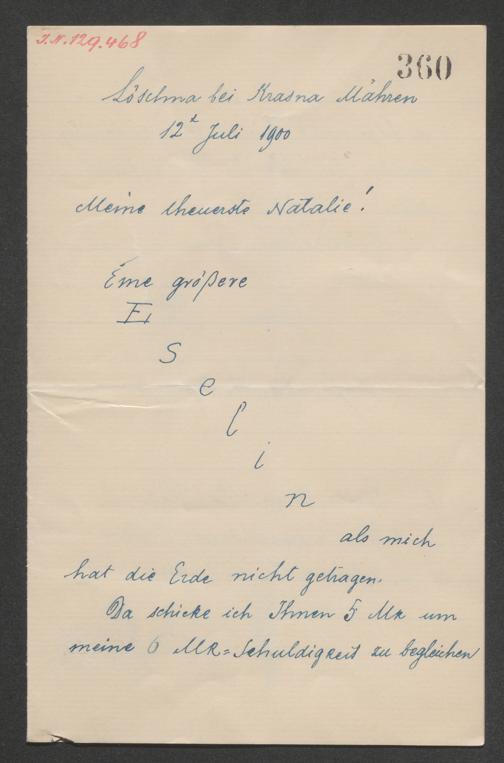 I.N. 129.468
360
Löschna bei Krasna Mähren
12t Juli 1900
Meine theuerste Natalie!
Eine größere
E
s
e
l
i
n
als mich
hat die Erde nicht getragen.
Da schicke ich Ihnen 5 Mk um
meine 6 Mk=Schuldigkeit zu begleichen